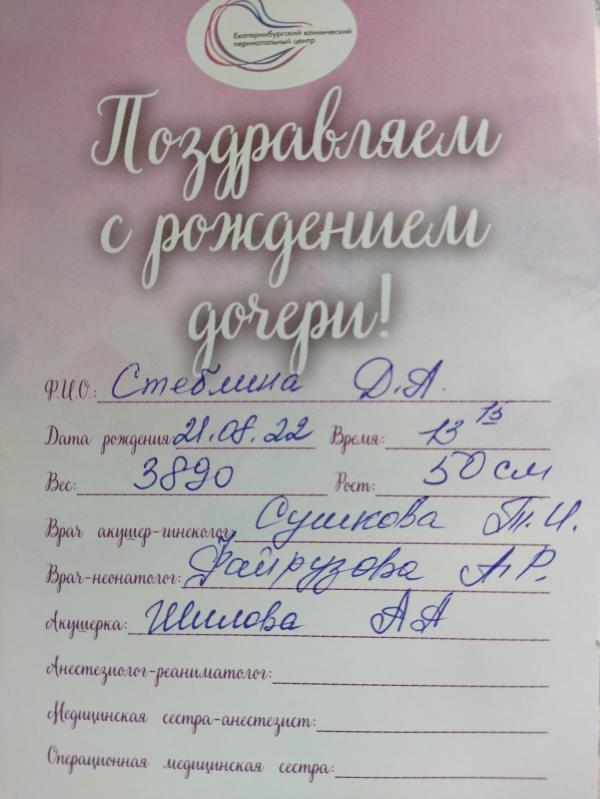 Екатеринбургский клинический
перинатальный центр
Поздравляем
с рождением
дочери!
Ф.И.О.: Стеблина Д.А.
Дата рождения: 21.08.22 Время: 13 15
Вес: 3890 Рост: 50 см
Врач акушер-гинеколог: Сушкова Т.И.
Врач-неонатолог: Файрузова А.Р.
Акушерка: Шилова А А
Анестезиолог-реаниматолог:
Медицинская сестра-анестезист:
Операционная медицинская сестра: